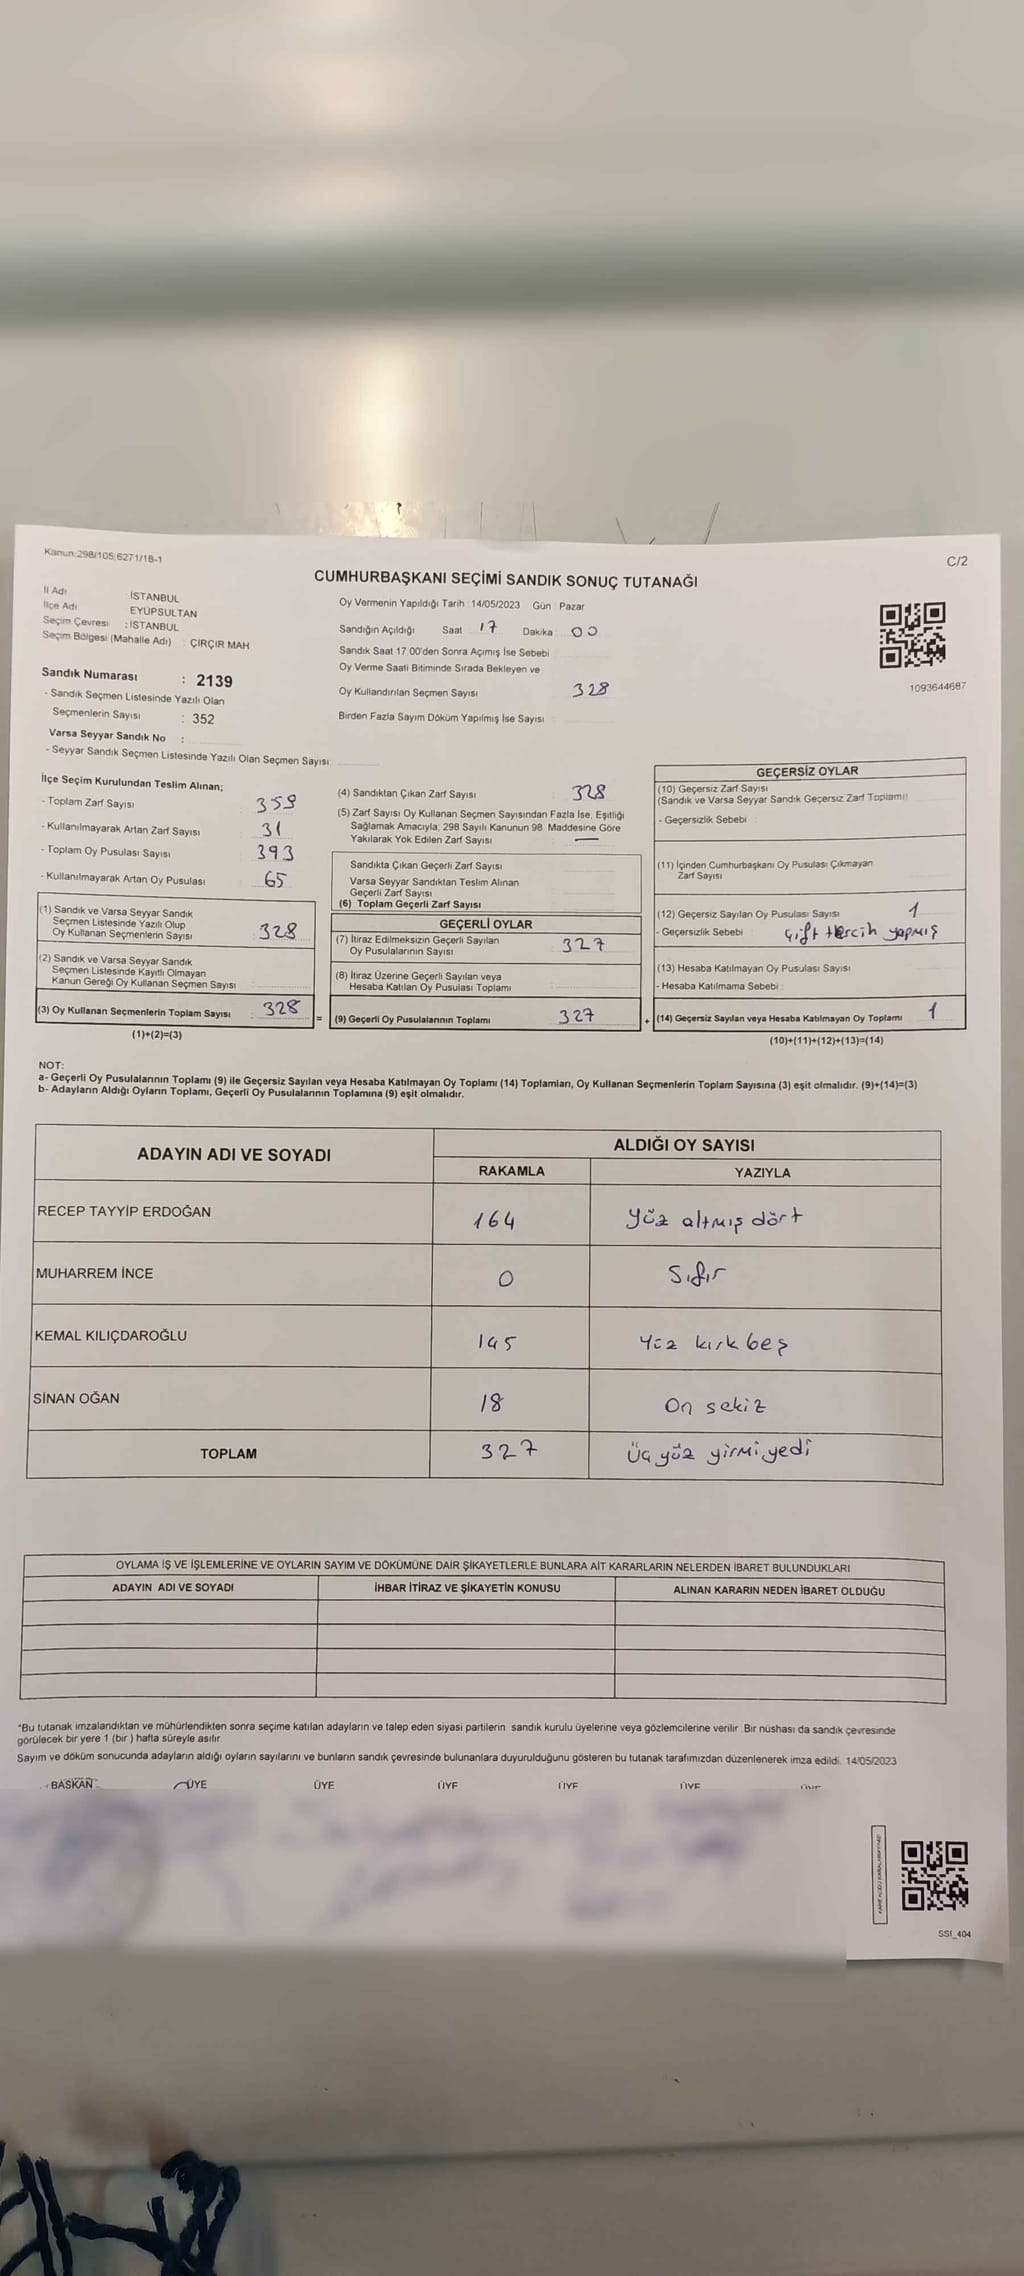 Kanun:298/105;6271/18-1
C/2
CUMHURBAŞKANI SEÇİMİ SANDIK SONUÇ TUTANAĞI
İl Adı İSTANBUL
İlçe Adı EYÜPSULTAN
Seçim Çevresi : İSTANBUL
Seçim Bölgesi (Mahalle Adı) : ÇIRÇIR MAH.
Sandık Numarası : 2139
- Sandık Seçmen Listesinde Yazılı Olan
Seçmenlerin Sayısı : 352
Varsa Seyyar Sandık No :
- Seyyar Sandık Seçmen Listesinde Yazılı Olan Seçmen Sayısı:
Oy Vermenin Yapıldığı Tarih : 14/05/2023 Gün : Pazar
Sandığın Açıldığı Saat 17 Dakika 00
Sandık Saat 17.00'den Sonra Açımış İse Sebebi
Oy Verme Saati Bitiminde Sırada Bekleyen ve
Oy Kullandırılan Seçmen Sayısı 328
Birden Fazla Sayım Döküm Yapılmış İse Sayısı :
1093644687
İlçe Seçim Kurulundan Teslim Alınan;
- Toplam Zarf Sayısı 359
- Kullanılmayarak Artan Zarf Sayısı 31
- Toplam Oy Pusulası Sayısı 393
- Kullanılmayarak Artan Oy Pusulası 65
(1) Sandık ve Varsa Seyyar Sandık
Seçmen Listesinde Yazılı Olup
Oy Kullanan Seçmenlerin Sayısı 328
(2) Sandık ve Varsa Seyyar Sandık
Seçmen Listesinde Kayıtlı Olmayan
Kanun Gereği Oy Kullanan Seçmen Sayısı
(3) Oy Kullanan Seçmenlerin Toplam Sayısı 328
(1)+(2)=(3)
=
(4) Sandıktan Çıkan Zarf Sayısı : 328
(5) Zarf Sayısı Oy Kullanan Seçmen Sayısından Fazla İse, Eşitliği
Sağlamak Amacıyla; 298 Sayılı Kanunun 98. Maddesine Göre
Yakılarak Yok Edilen Zarf Sayısı : —
Sandıkta Çıkan Geçerli Zarf Sayısı
Varsa Seyyar Sandıktan Teslim Alınan
Geçerli Zarf Sayısı
(6) Toplam Geçerli Zarf Sayısı
GEÇERLİ OYLAR
(7) İtiraz Edilmeksizin Geçerli Sayılan
Oy Pusulalarının Sayısı 327
(8) İtiraz Üzerine Geçerli Sayılan veya
Hesaba Katılan Oy Pusulası Toplamı
(9) Geçerli Oy Pusulalarının Toplamı 327
+
GEÇERSİZ OYLAR
(10) Geçersiz Zarf Sayısı
(Sandık ve Varsa Seyyar Sandık Geçersiz Zarf Toplamı)
- Geçersizlik Sebebi
(11) İçinden Cumhurbaşkanı Oy Pusulası Çıkmayan
Zarf Sayısı
(12) Geçersiz Sayılan Oy Pusulası Sayısı 1
- Geçersizlik Sebebi çift tercih yapmış
(13) Hesaba Katılmayan Oy Pusulası Sayısı
- Hesaba Katılmama Sebebi :
(14) Geçersiz Sayılan veya Hesaba Katılmayan Oy Toplamı 1
(10)+(11)+(12)+(13)=(14)
NOT:
a- Geçerli Oy Pusulalarının Toplamı (9) ile Geçersiz Sayılan veya Hesaba Katılmayan Oy Toplamı (14) Toplamları, Oy Kullanan Seçmenlerin Toplam Sayısına (3) eşit olmalıdır. (9)+(14)=(3)
b- Adayların Aldığı Oyların Toplamı, Geçerli Oy Pusulalarının Toplamına (9) eşit olmalıdır.
ADAYIN ADI VE SOYADI ALDIĞI OY SAYISI
RAKAMLA YAZIYLA
RECEP TAYYİP ERDOĞAN 164 Yüz altmış dört
MUHARREM İNCE 0 Sıfır
KEMAL KILIÇDAROĞLU 145 Yüz kırk beş
SİNAN OĞAN 18 On sekiz
TOPLAM 327 Üç yüz yirmi yedi
OYLAMA İŞ VE İŞLEMLERİNE VE OYLARIN SAYIM VE DÖKÜMÜNE DAİR ŞİKAYETLERLE BUNLARA AİT KARARLARIN NELERDEN İBARET BULUNDUKLARI
ADAYIN ADI VE SOYADI İHBAR İTİRAZ VE ŞİKAYETİN KONUSU ALINAN KARARIN NEDEN İBARET OLDUĞU
*Bu tutanak imzalandıktan ve mühürlendikten sonra seçime katılan adayların ve talep eden siyasi partilerin sandık kurulu üyelerine veya gözlemcilerine verilir. Bir nüshası da sandık çevresinde
görülecek bir yere 1 (bir) hafta süreyle asılır.
Sayım ve döküm sonucunda adayların aldığı oyların sayılarını ve bunların sandık çevresinde bulunanlara duyurulduğunu gösteren bu tutanak tarafımızdan düzenlenerek imza edildi. 14/05/2023
BAŞKAN ÜYE ÜYE ÜYE ÜYE ÜYE ÜYE
SSI_404